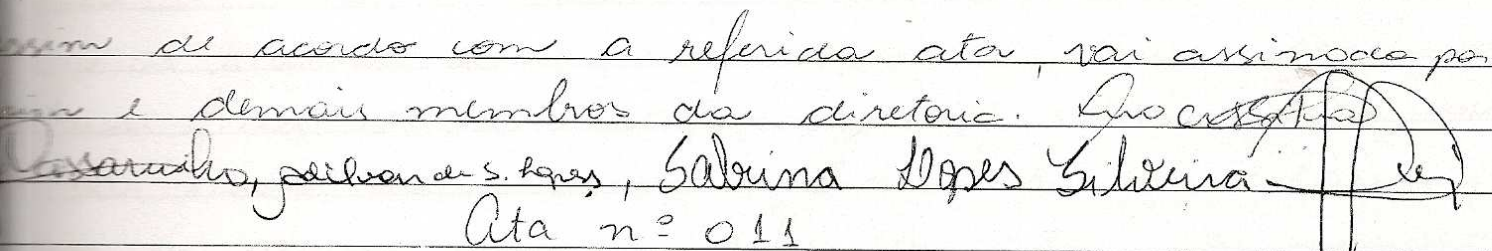 de acordo com a referida ata, vai assinada por
e demais membros da diretoria.
S. Lopes, Sabrina Lopes Silveira
Ata nº 011